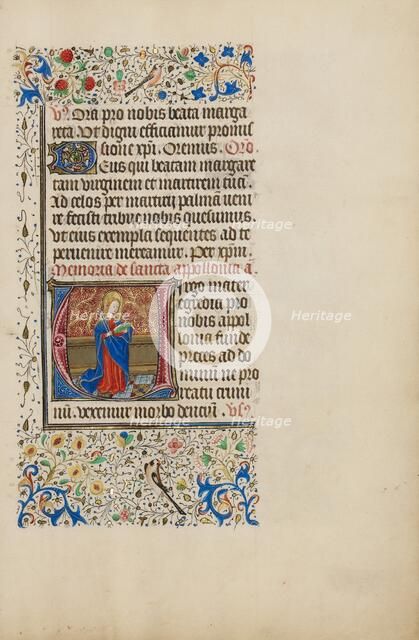 V̷. Ora pro nobis beata marga
reta Ut digni efficiamur promis
sione xp̄i. Oremus. Oro
Deus qui beatam margare
tam virginem et martirem tuā
Ad celos per martirii palmā veni
re fecisti tribue nobis quesumus
Ut eius exempla sequentes ad te
pervenire mereamur. Per xp̄m.
Memoria de sancta appollonia a
Virgo mater
egregia pro
nobis appol
lonia funde
preces ad do
minū ne pro
reatu crimi
nū. vexemur morbo dencium. Vs̷
Heritage
Heritage
Heritage
Heritage
Heritage